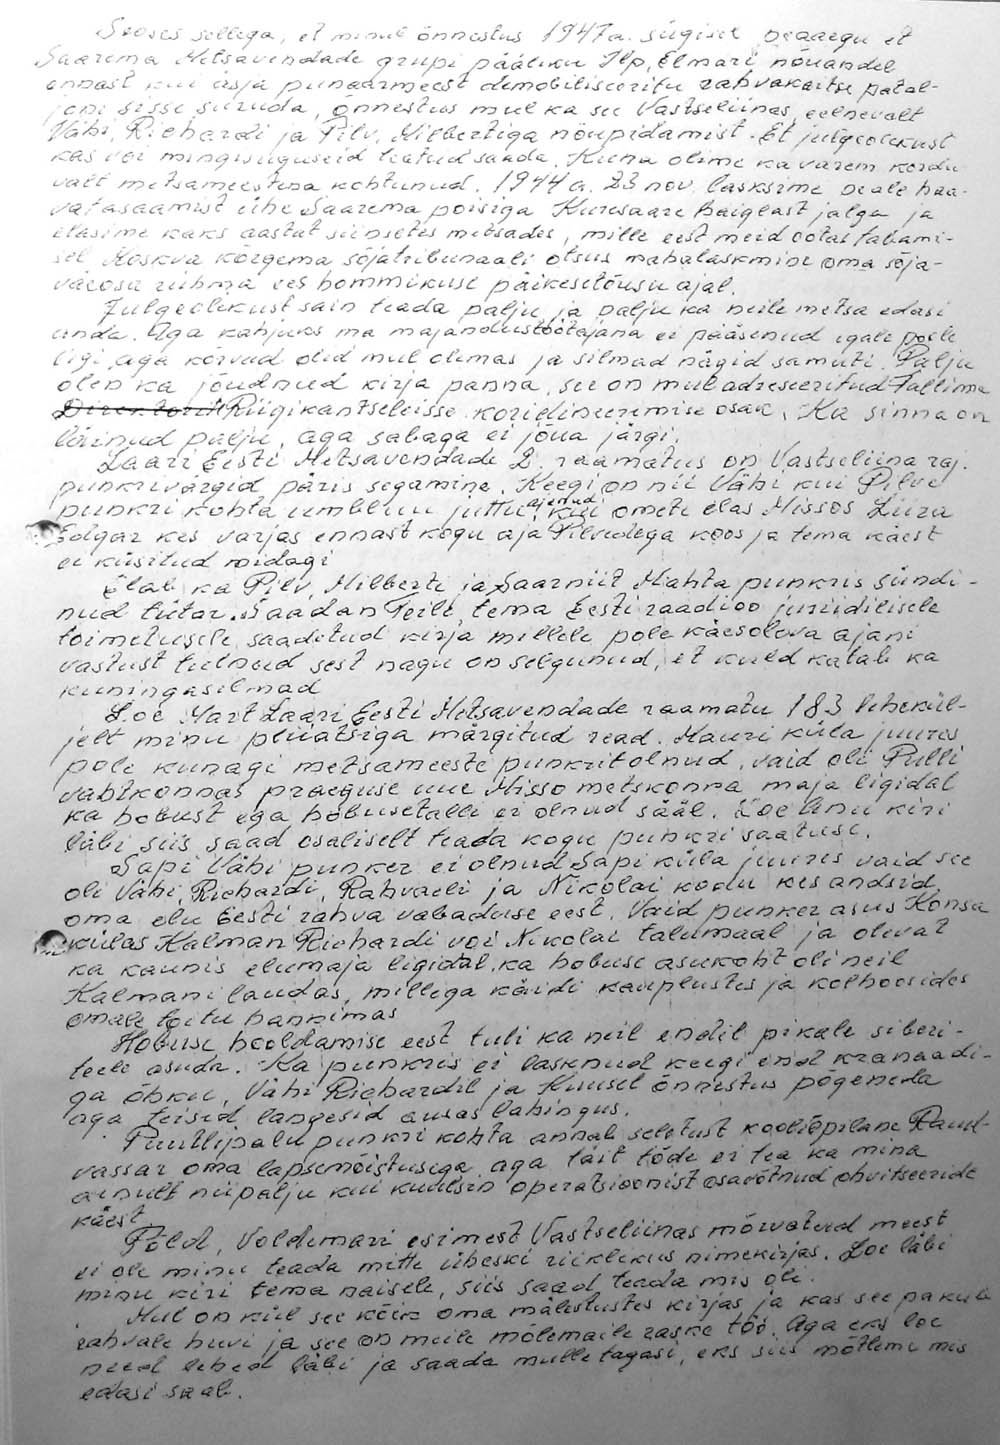 Seoses sellega, et minul õnnestus 1947a. sügisel peaaegu et
Saarema Metsavendade grupi pääliku Ilp, Elmari nõuandel
ennast kui äsja punaarmeest demobiliseeritu rahvakaitse patal-
joni sisse siruda, õnnestus mul ka see Vastseliinas, eelnevalt
Vähi, Richardi ja Pilv, Hilbertiga nõupidamist. Et julgeolekust
kas voi mingisuguseid teatud saada. Kuna olime ka varem kordu
valt metsameestena kohtunud. 1944 a. 23 nov. lasksime peale haa-
vatasaamist ühe Saarema poisiga Kuresaare haiglast jalga ja
elasime kaks aastat siinsetes metsades, mille eest meid ootas tabami-
sel Moskva kõrgema sõjatribunaali otsus mahalaskmine oma sõja-
väeosa rühma ees hommikuse päikesetõusu ajal.
Julgeolekust sain teada palju ja palju ka neile metsa edasi
anda. Aga kahjuks ma majandustöötajana ei pääsenud igale poole
ligi, aga kõrvad olid mul olemas ja silmad nägid samuti. Palju
olen ka jõudnud kirja panna, see on mul adreseeritud Tallinna
Riigikantseleisse koridineeremise osak. Ka sinna on
läinud palju, aga sabaga ei jõua järgi.
Laari Eesti Metsavendade 2. raamatus on Vastseliina raj.
punkrivärgid päris segamine. Keegi on nii Vähi kui Pilve
punkri kohta umbluu juttu ajanud, kui ometi elas Missos Liira
Edgar kes varjas ennast kogu aja Pilvedega koos ja tema käest
ei küsitud midagi
Elab ka Pilv, Hilberti ja Saarniit Mahta punkris sündi-
nud tütar. Saadan Teile, tema Eesti raadioo juriidilisele
toimetusele saadetud kirja millele pole käesoleva ajani
vastust tulnud sest nagu on selgunud, et kuld katab ka
kuningasilmad
Loe Mart Laari Eesti Metsavendade raamatu 183 lehekül-
jelt minu pliiatsiga märgitud read. Mauri küla juures
pole kunagi metsameeste punkrit olnud, vaid oli Pulli
vahtkonnas praeguse uue Misso metskonna maja ligidal
ka hobust ega hobusetalli ei olnud sääl. Loe Anu kiri
läbi siis saad osaliselt teada kogu punkri saatuse.
Sapi Vähi punker ei olnud Sapi küla juures vaid see
oli Vähi, Richardi, Rahvaeli ja Nikolai kodu kes andsid
oma elu Eesti rahva vabaduse eest. Vaid punker asus Konsa
külas Kalman Richardi voi Nikolai talumaal ja olevat
ka kaunis elumaja ligidal, ka hobuse asukoht oli neil
Kalmani laudas, millega käidi kauplustes ja kolhoosides
omale toitu hankimas
Hobuse hooldamise eest tuli ka neil endil pikale siberi-
teele asuda. Ka punkris ei lasknud keegi end kranaadi-
ga õhku, Vähi Richardil ja Kuusel õnnestus põgeneda
aga teised langesid ausas lahingus.
Puutlipalu punkri kohta annab seletust kooliõpilane Raud-
vassar oma lapsemõistusega, aga täit tõde ei tea ka mina
ainult niipalju kui kuulsin operatsioonist osavõtnud ohvitseeride
käest
Põld, Voldemari esimest Vastseliinas mõrvatud meest
ei ole minu teada mitte üheski riiklikus nimekirjas. Loe läbi
minu kiri tema naisele, siis saad teada mis oli.
Mul on küll see kõik oma mälestustes kirjas ja kas see pakub
rahvale huvi ja see on meile mõlemaile raske töö. Aga eks loe
need lehed läbi ja saada mulle tagasi, eks siis mõtleme mis
edasi saab.